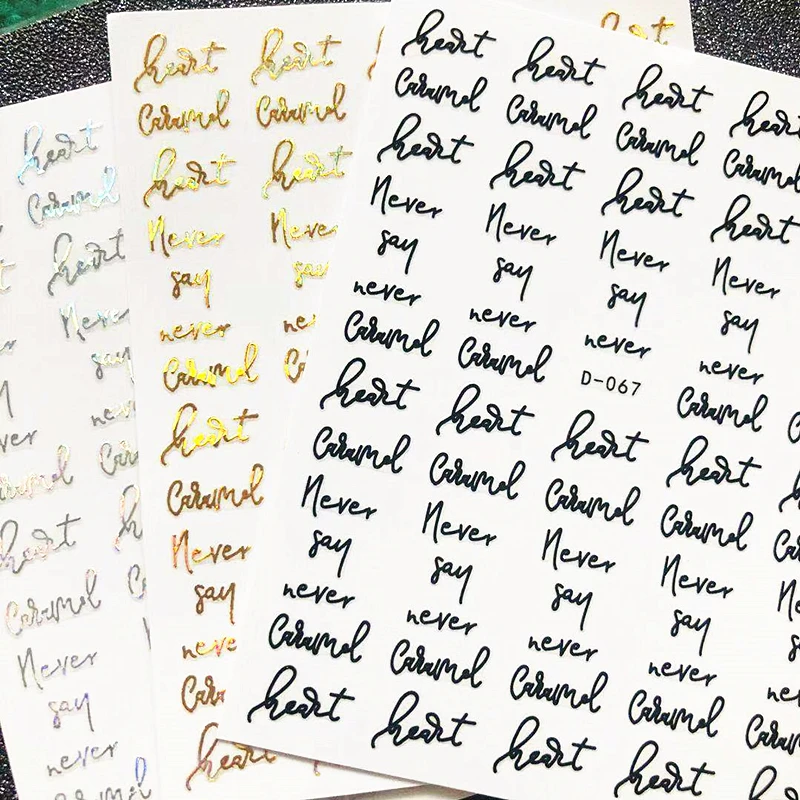 heart
Caramel
heart
Never
say
Caramel
heart
Caramel
Never
say
never
heart heart
Caramel Caramel
heart heart
Never Never
say say
never
Caramel
heart
Caramel
Never
say
never
heart
heart heart heart heart
Caramel Caramel Caramel Caramel
heart heart heart heart
Never Never Never Never
say say say say
never never never never
Caramel Caramel D-067 Caramel
heart heart heart heart
Caramel Caramel Caramel Caramel
Never Never Never Never
say say say say
never never never never
Caramel Caramel Caramel Caramel
heart heart heart heart